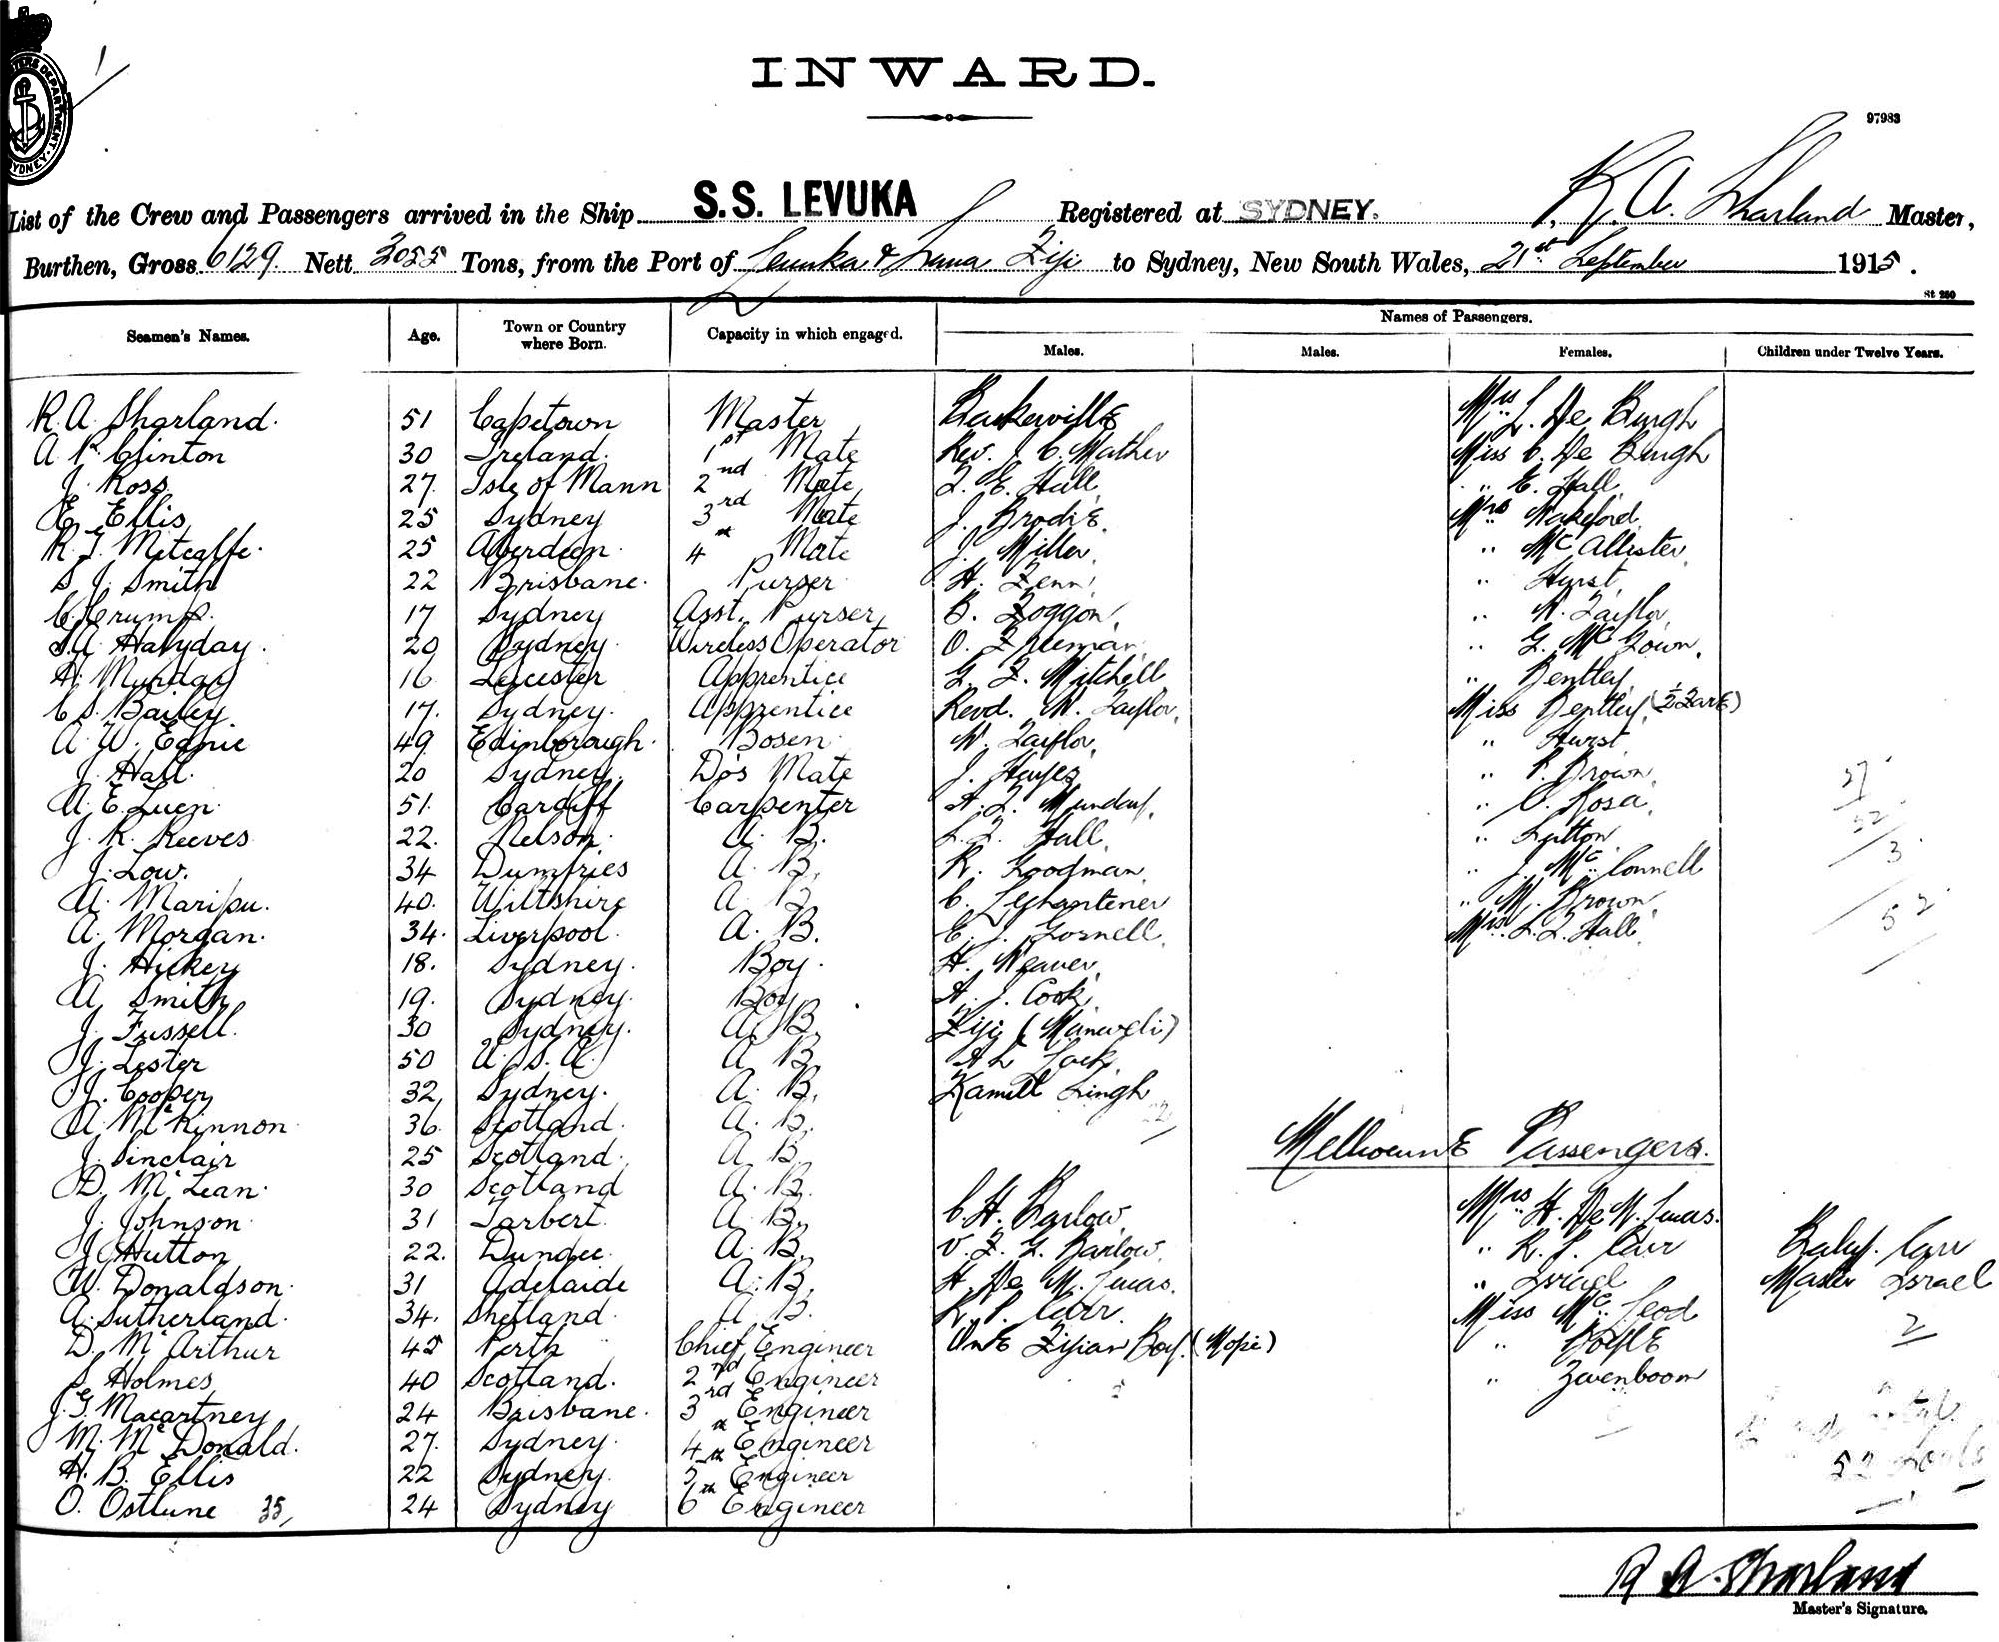 INWARD.
97983
List of the Crew and Passengers arrived in the Ship S.S. LEVUKA Registered at SYDNEY. R. A. Sharland Master,
Burthen, Gross 6129. Nett 3055 Tons, from the Port of Levuka & Suva Fiji to Sydney, New South Wales, 21st September 1915.
St 250
Seamen's Names. Age. Town or Country where Born. Capacity in which engaged. Names of Passengers.
Males. Males. Females. Children under Twelve Years.
R. A. Sharland. 51 Capetown Master Baskerville Mrs L. De Burgh
A. P. Clinton 30 Ireland. 1st Mate Rev. J. C. Mather Miss C. De Burgh
J. Ross 27. Isle of Mann 2nd Mate F. E. Hall " E. Hall
E. Ellis 25 Sydney 3rd Mate J. Brodie Mrs Wakeford
R. G. Metcalfe. 25 Aberdeen. 4th Mate J. Miller " Mc Allister
S. J. Smith 22 Brisbane. Purser H. Fenn " Hurst
C. Crump. 17 Sydney Asst. Purser B. Foggon " W. Taylor
S. A. Halyday. 20 Sydney. Wireless Operator O. Freeman " G. Mc Gown
H. Munday 16 Leicester Apprentice G. F. Mitchell " Bentley
C. S. Bailey. 17. Sydney. Apprentice Revd. W. Taylor Miss Bentley (½ Fare)
A. W. Eddie 49 Edinborough. Bosen W. Taylor " Hurst
J. Hall. 20 Sydney. Do's Mate J. Hayes " P. Brown
A. E. Luen. 51. Cardiff Carpenter A. F. Munday " O. Rosa
J. R. Reeves 22. Nelson. A. B. L. F. Hall " Lytton
J. Low. 34 Dumfries A. B. R. Goodman " J. Mc Connell
A. Maripu. 40. Wiltshire A. B. C. " M. Brown
A. Morgan. 34. Liverpool. A. B. E. J. Gosnell Mrs L. F. Hall
J. Hickey 18. Sydney. Boy. H. Weaver
A. Smith 19. Sydney. Boy A. J. Cook
J. Fussell. 30 Sydney. A. B. Fiji (Manaveli)
J. Lester 50 U. S. A. A. B. Ah Jack
J. Cooper 32 Sydney. A. B. Kamill Singh
A. Mc Kinnon 36. Scotland. A. B. 22
J. Sinclair 25 Scotland. A. B. Melbourne Passengers.
D. Mc Lean. 30 Scotland A. B.
J. Johnson 31 Tarbert. A. B. C. H. Barlow Mrs H. De M. Lucas.
J. Hutton 22. Dundee. A. B. V. F. G. Barlow " R. P. Carr Baby. Carr
W. Donaldson. 31 Adelaide A. B. H. De M. Lucas. " Israel Master Israel
A. Sutherland. 34. Shetland. A. B. R. P. Carr. Miss Mc Leod 2
D. Mc Arthur 45 Perth Chief Engineer One Fijian Boy. (Mopi) " Doyle
S. Holmes 40 Scotland. 2nd Engineer " Zevenboom
J. G. Macartney 24 Brisbane. 3rd Engineer
M. Mc Donald. 27. Sydney. 4th Engineer
H. B. Ellis 22 Sydney. 5th Engineer
O. Ostlune 35 24 Sydney 6th Engineer
R A. Sharland
Master's Signature.